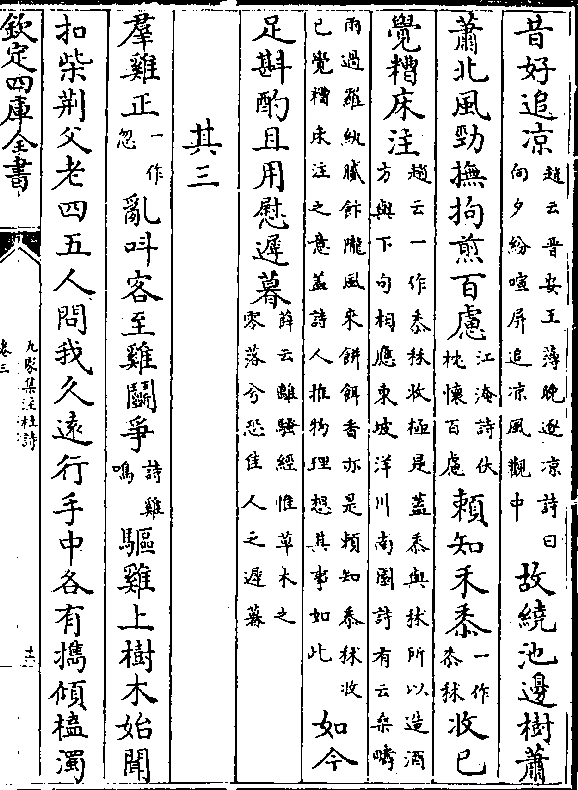 昔好追凉趙云晋安王薄晚逐凉詩曰向夕紛喧屏追凉風觀中故繞池邊樹蕭
蕭北風勁撫拘煎百慮江淹詩伏枕懷百慮賴知禾黍一作黍秫收已
覺糟床注趙云一作黍秫收極是蓋黍與秫所以造酒方與下句相應東坡洋川南園詩有云桑疇
雨過羅紈膩䴵隴風來餅餌香亦是賴知黍秫收已覺糟床注之意蓋詩人推物理想其事如此如今
足斟酌且用慰遲暮薛云離騷經惟草木之零落兮恐佳人之遲暮
其三
羣雞正一作忽亂呌客至雞鬭爭詩雞鳴驅雞上樹木始聞
扣柴荆父老四五人問我久遠行手中各有攜傾榼濁
欽定四庫全書
九家集注杜詩
卷三